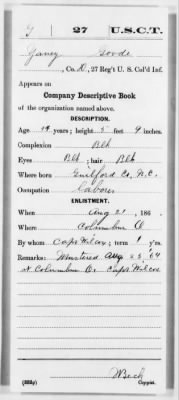 G 27 U.S.C.T.
Yancy Goode
, Co. D, 27 Reg't U. S. Col'd Inf.
Appears on
Company Descriptive Book
of the organization named above.
DESCRIPTION.
Age 19 years; height 5 feet 9 inches.
Complexion Blk
Eyes Blk; hair Blk
Where born Guilford Co, N.C.
Occupation Laborer
ENLISTMENT.
When Aug 21, 186 .
Where Columbus O
By whom Capt Wilcox; term 1 y'rs.
Remarks: Mustered Aug 23 '64
at Columbus O. Capt Wilcox
Beck
Copyist.